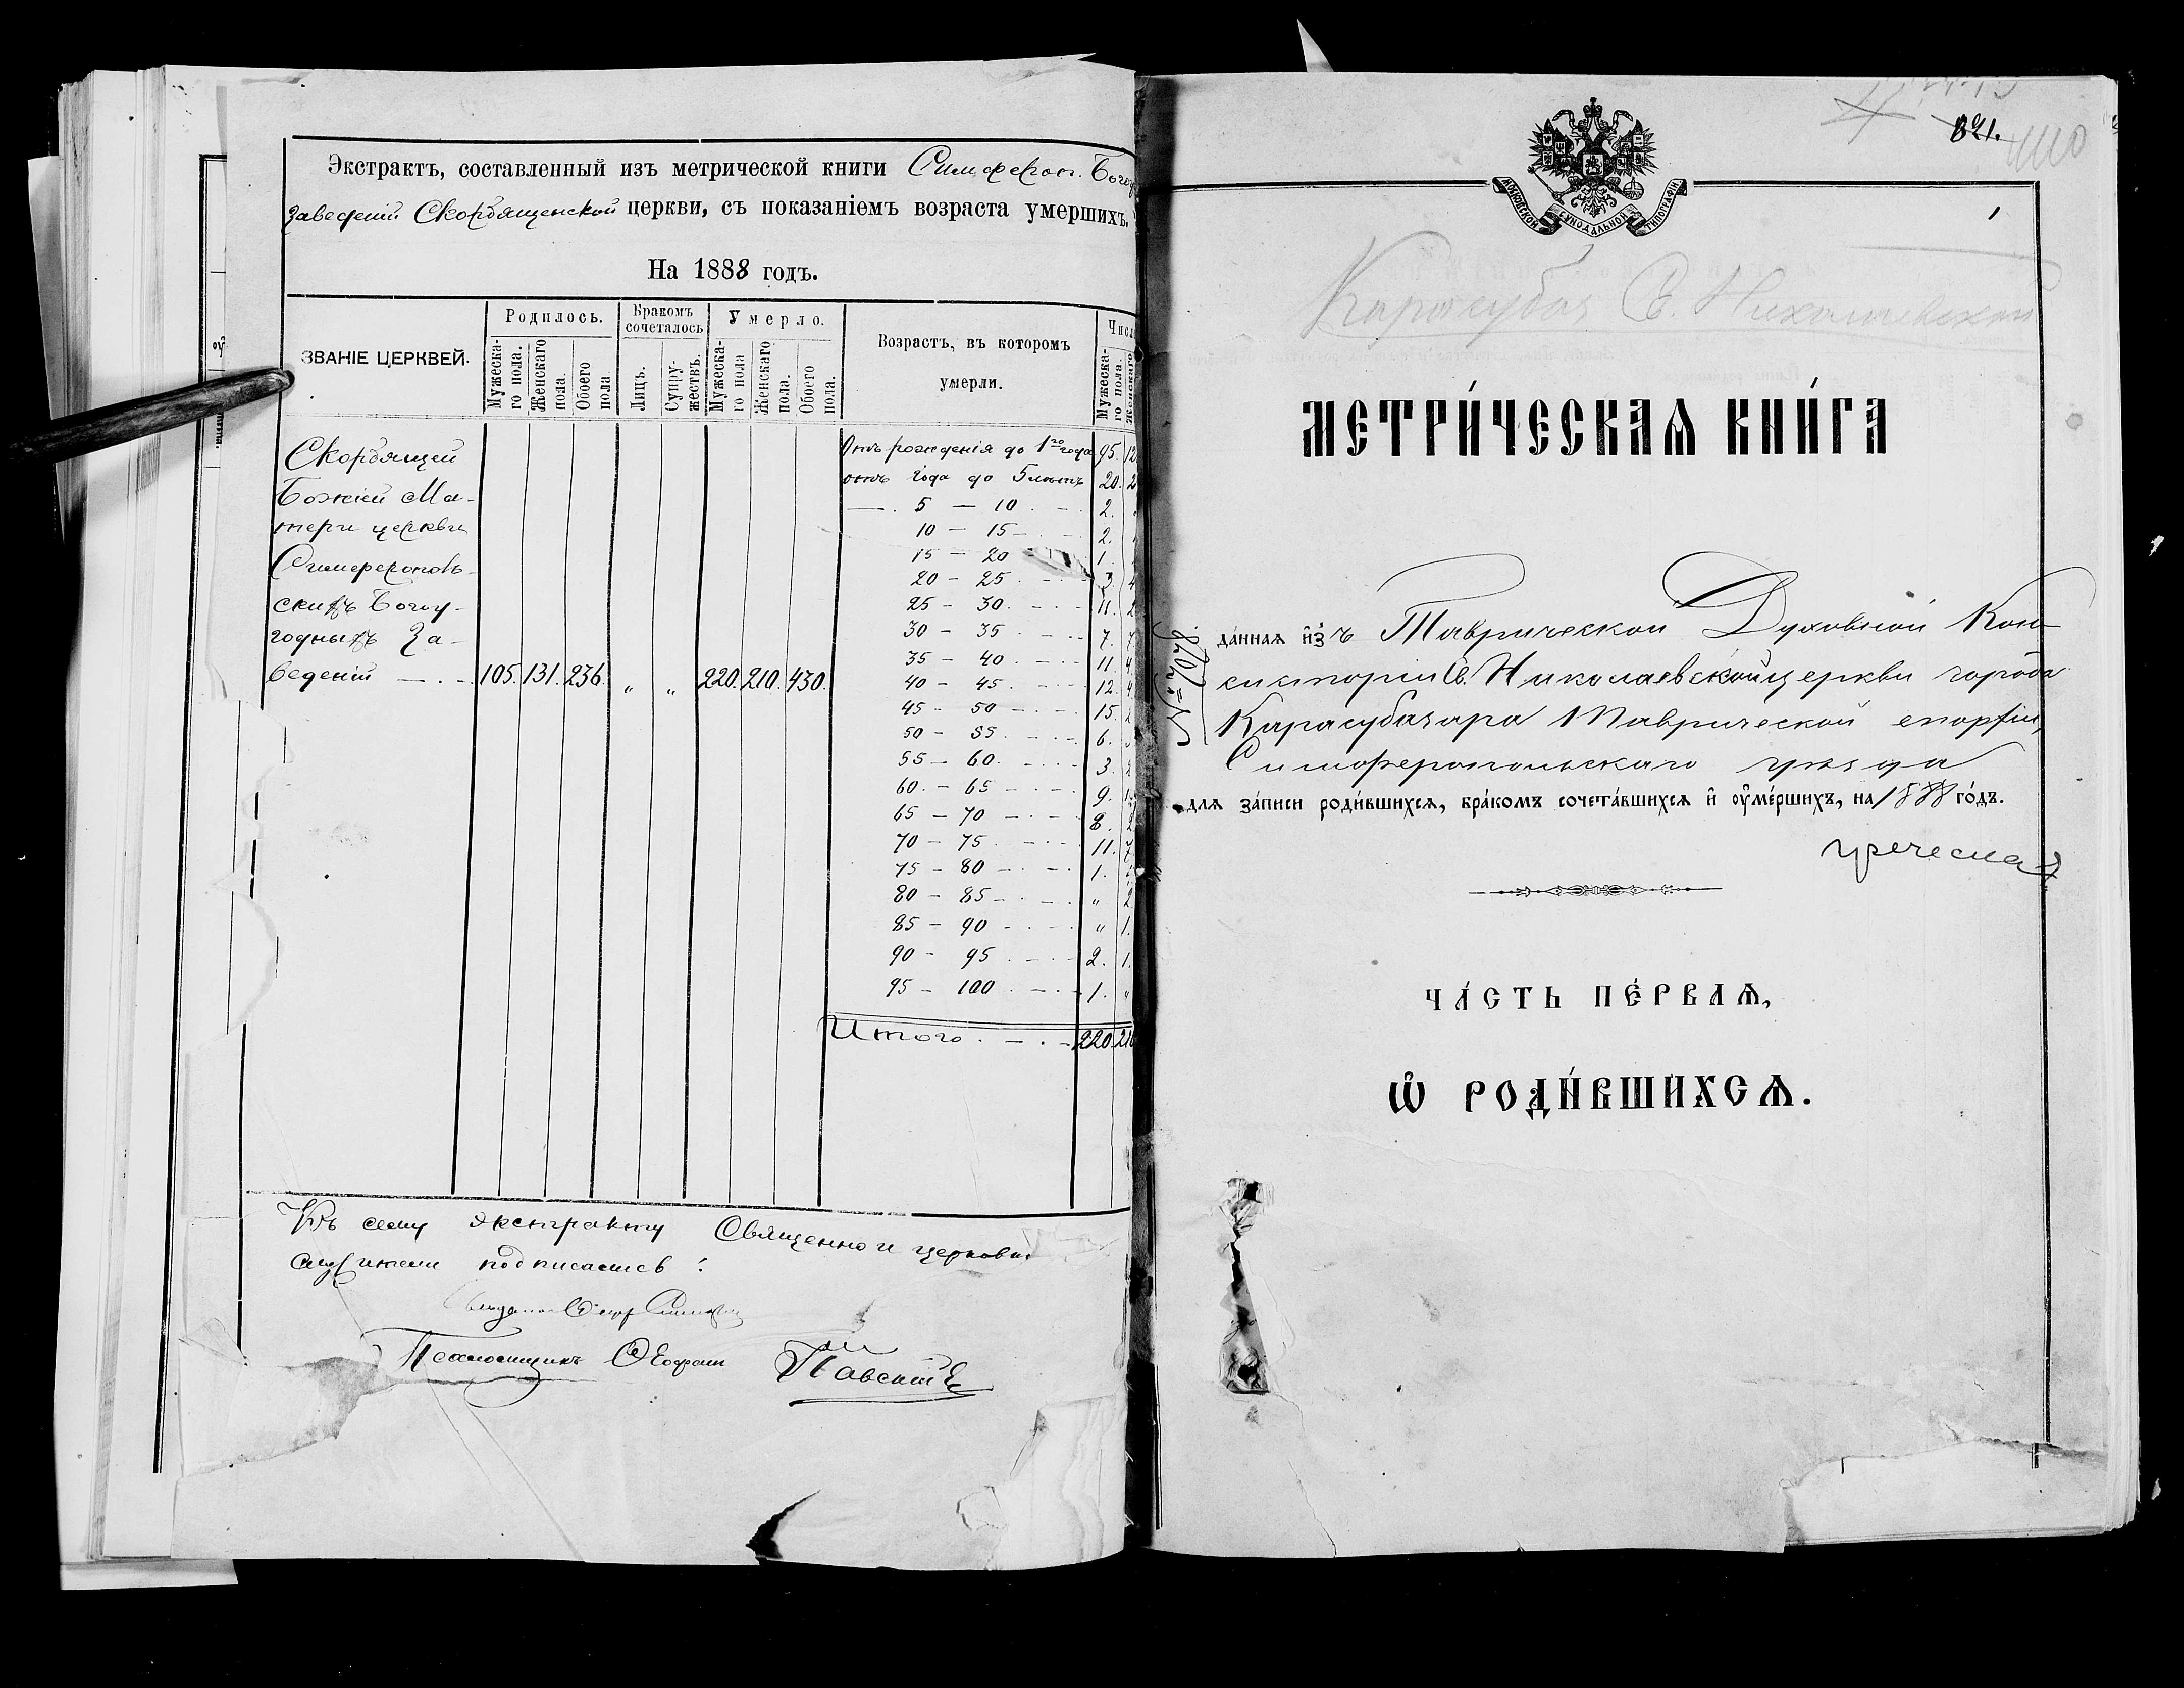 Экстрактъ, составленный изъ метрической книги Симфероп. Богоу
заведеній Скорбященской церкви, съ показаніемъ возраста умершихъ.
На 1888 годъ.
ЗВАНІЕ ЦЕРКВЕЙ.
Родилось.
Мужеска-
го пола.
Женскаго
пола.
Обоего
пола
Бракомъ
сочеталось
Лицъ.
Супру-
жествъ.
Умерло.
Мужеска-
го пола
Женскаго
пола.
Обоего
пола.
Возрастъ, въ которомъ
умерли.
Числ
Мужеска-
го пола.
Женскаго
Скорбящей
Божіей Ма-
тери церкви
Симферополь-
скихъ Богоу-
годныхъ За-
веденій — . - 105. 131. 236. „ „ 220. 210. 430.
Отъ рожденія до 1го года 95. 12
отъ 1 года до 5 лѣтъ 20. 2
— . 5 — 10 . - . 2.
10 — 15 — . - 2.
15 — 20 1.
20 - 25 . - . 3. 4
25 - 30 . - . - 11. 2
30 - 35 . - - 7. 7.
35 - 40 . - . - 11. 4
40 - 45 . - - - 12. 4
45 - 50 - . - 15. 2
50 - 55 . - - . 6.
55 - 60 . - . - . 3. 2
60 . - 65 - . - . 9. 1.
65 - 70 - . - 8. 2
70 - 75 . - . - 11. 7
75 - 80 - . - . 1.
80 - 85 - . - „ 2
85 - 90 - . - „ 1.
90 - 95 . - . 2. 1.
95 - 100 . - . - 1. „
Итого . — . - 220. 210
Къ сему экстракту Священно и церковно
служители подписались:
Псаломщикъ Ѳеофан Павскій
МОСКОВСКОЙ СѴНОДАЛЬНОЙ ТИПОГРАФІИ
821.
1110
1
Карасубаз Св. Николаевской
МЕТРИ́ЧЕСКАѦ КНИ́ГА
№ 12078
да́ннаѧ и҆зъ Таврической Духовной Кон-
систоріи Св. Николаевской церкви города
Карасубазара Таврической епархіи,
Симферопольскаго уѣзда
для за́писи роди́вшихсѧ, бра́комъ сочета́вшихсѧ и҆ ѹ҆ме́ршихъ, на 1888 го́дъ.
греческая
ЧА́СТЬ ПЕ́РВАѦ,
Ѡ҆ РОДИ́ВШИХСѦ.